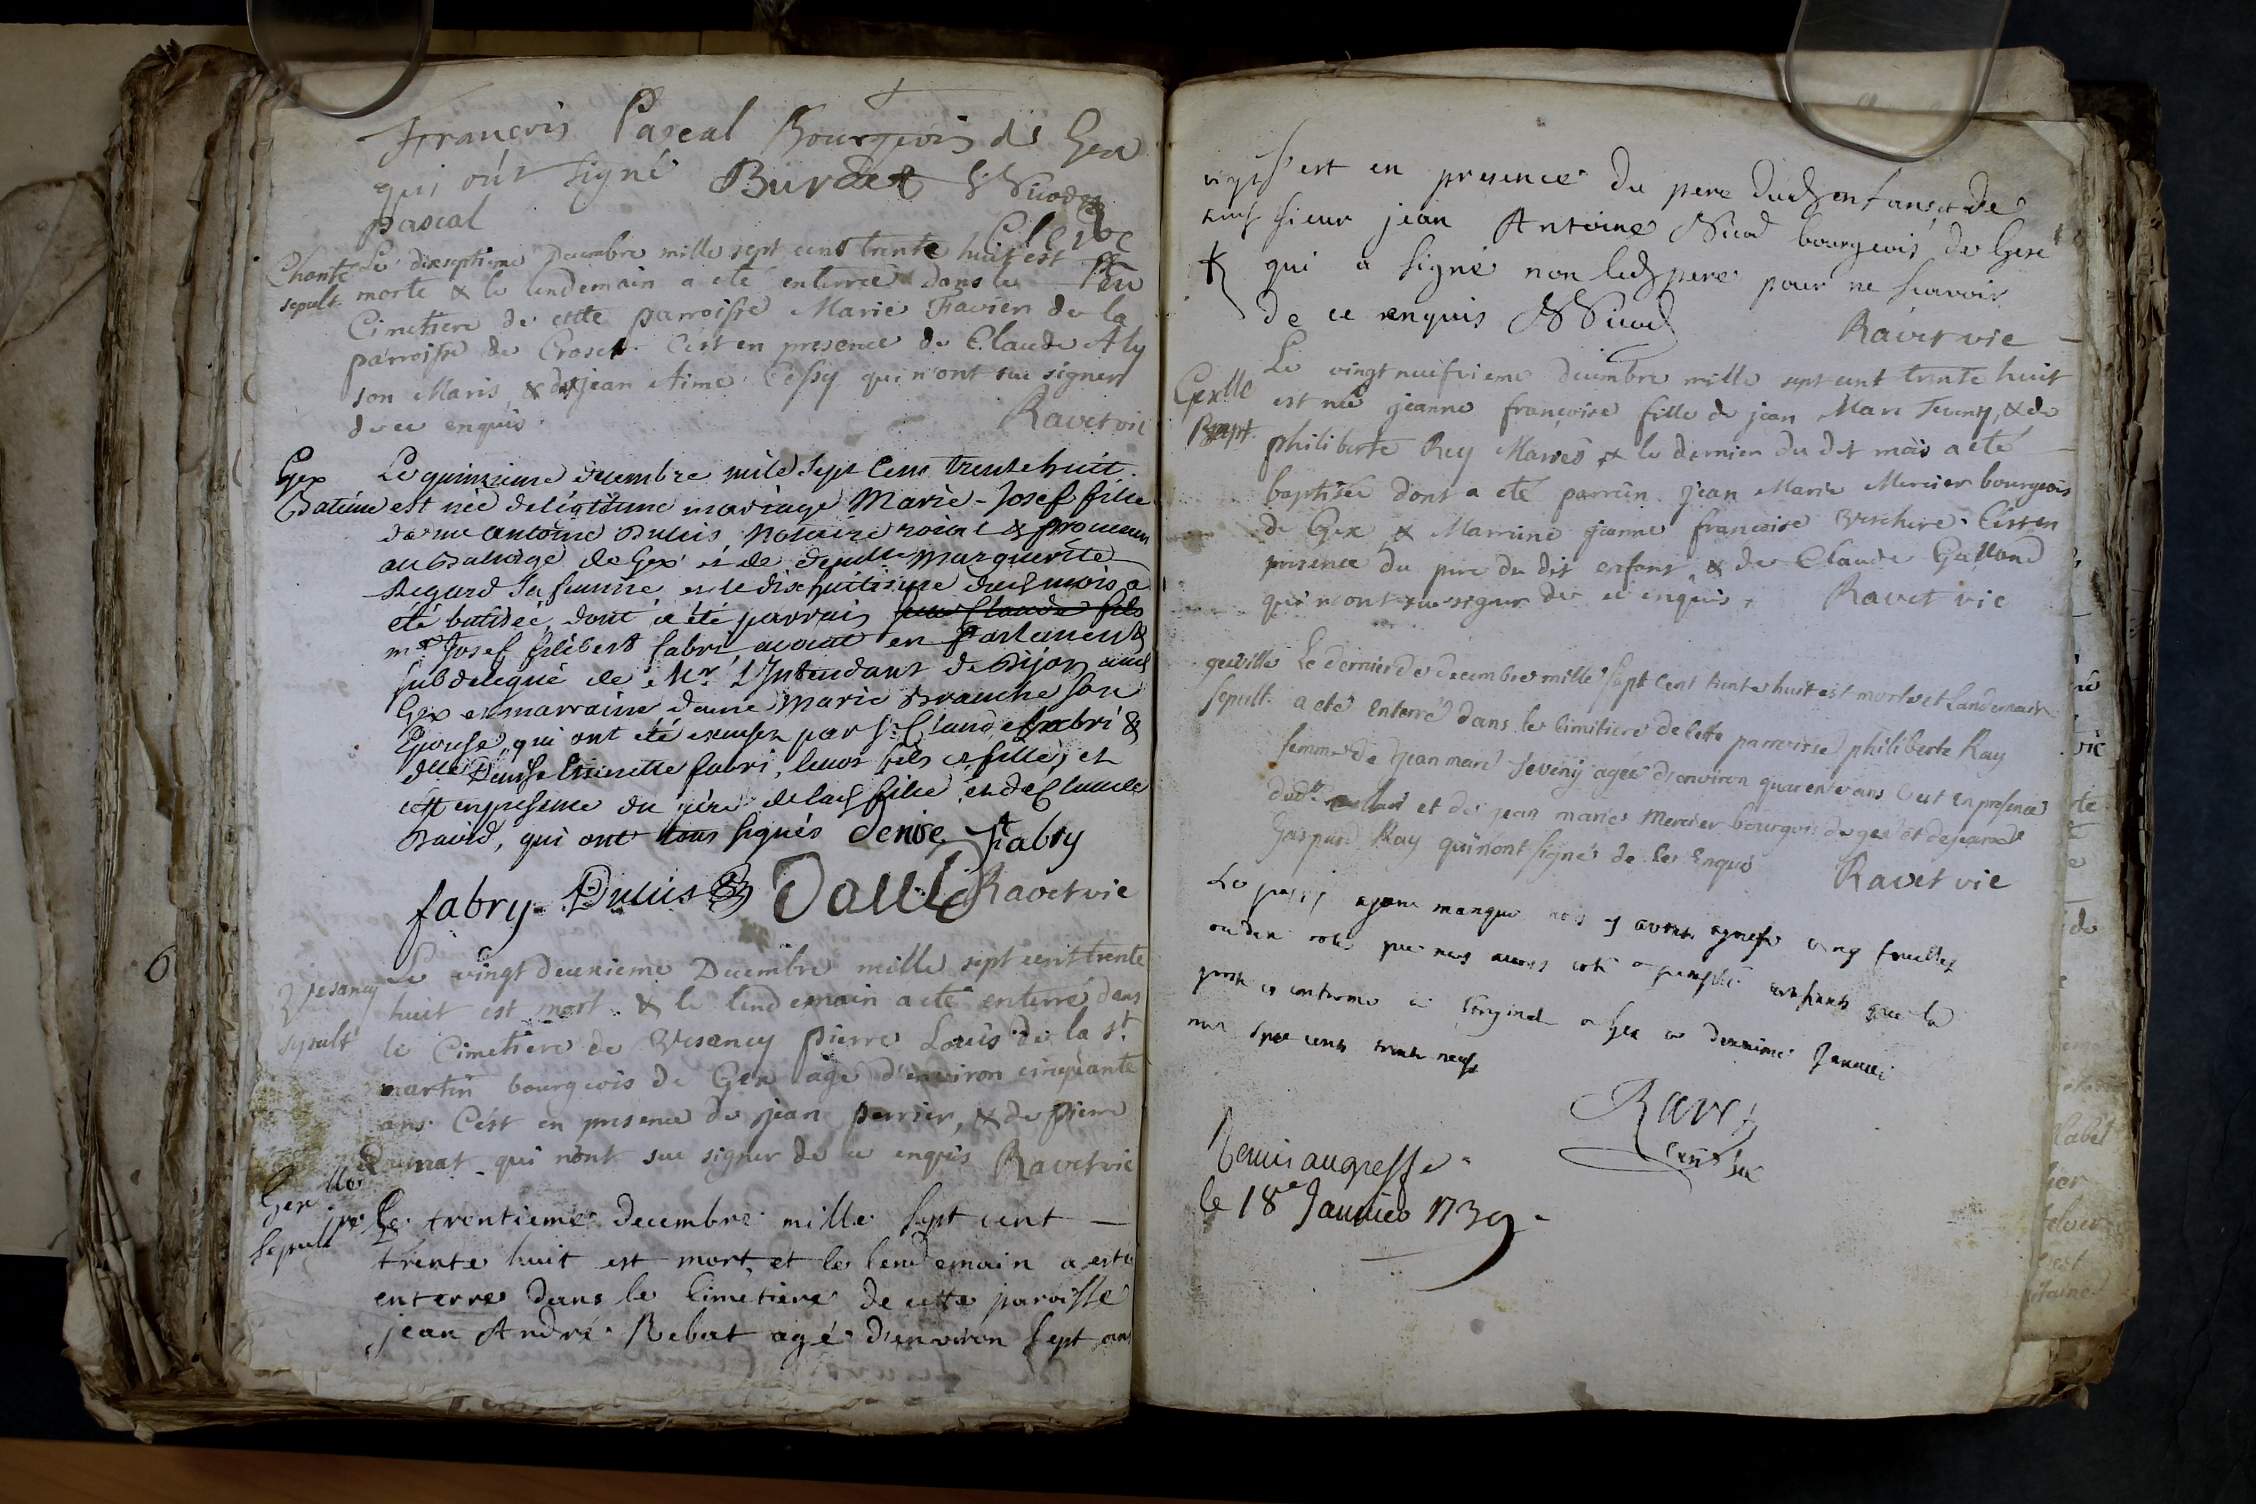 François Pascal Bourgeois de Gex
qui ont signé Burdet Nicod
Pascal
Clerc
Chante Le dixseptieme Decembre mille sept cent trente huit est
sepult. morte & le lendemain a eté enterreé dans le
Cimetiere de cette parroisse Marie Favier de la
parroisse de Croset. C'est en presence de Claude Aly
son Maris, & de jean Aimé Cessy qui n'ont sue signer
de ce enquis. Ravet vic
Gex Le quinzieme decembre mile sept cens trente huit
Batême est née de légitime mariage Marie-Josef fille
de me antoine Duluis Notaire roial & procureur
au Balliage de Gex et de demlle Marguerite
Regard sa femme et le dixhuitieme dud mois a
été batisée, dont a été parrain Claude fils
mr Josef filibert fabri avocat en Parlement &
subdelegué de Mr. L'Intendant de Dijon aud
Gex et marraine dame Marie Branche son
Epouse, qui ont été par Sr. Claude fabri &
dlle Denise fabri, leurs fils et fille, et
c'est en presence du père de lad fille et de Claude
David, qui ont tous signés denise fabry
fabry Duluis David Ravet vic
Vesancy Le vingt deuxieme Decembre mille sept cent trente
sepult huit est mort & le lendemain a eté enterré dans
le Cimetiere de Vesancy pierre Louis de la st.
martin bourgeois de Gex agé d'environ cinquante
ans. C'est en presence de jean perrier, & de pierre
qui n'ont sue signer de ce enquis Ravet vic
Gex lle
sepult Le trentieme decembre mille sept cent —
trente huit est mort, et le lendemain a esté
enterré dans le Cimetiere de cette paroisse
jean André Rebat agé d'environ sept ans
c'est en presence du pere dud enfans, & de
sieur jean Antoine Nicod bourgeois de Gex
qui a signé non led pere pour ne scavoir
de ce enquis Nicod
Ravet vic
Le vingt neufvieme decembre mille sept cent trente huit
Gex lle est née jeanne françoise fille de jean Marc Seveny, & de
Bapt. philiberte Rey Mariés & le dernier du dit mois a eté
baptisée dont a eté parrin jean Marie Mercier bourgeois
de Gex & Marrine jeanne francoise C'est en
presence du pere du dit enfant & de Claude Galland
qui n'ont sue signer de ce enquis. Ravet vic
gexville Le dernier de decembre mille sept cent trente huit est morte et Landemain
sepult. a eté Enterré dans le Cimitiere de Cette parroisse philiberte Ray
femme de Jean marc Seveny agée d'environ quarente ans C'est en presence
dudt. mari et de jean marie Mercier bourgeois de gex et de
Gaspard Ray qui n'ont signés de ces Enquis Ravet vic
Le ayant manqué nous y avons cinq feuilles
que nous avons coté et paraphé que la
conforme a l'original a Gex ce deuxieme Janvier
mil sept cents trente neuf
Ravet
curé Gex
Remis au greffe
le 18e Janvier 1739